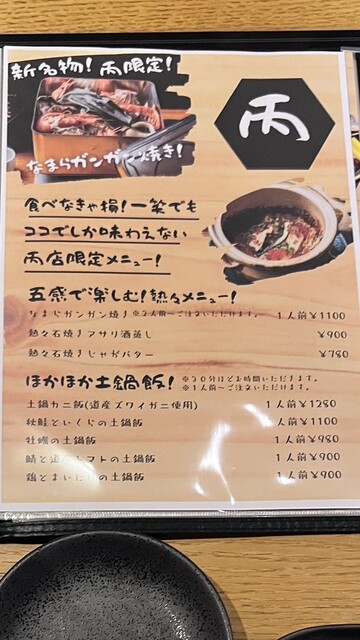 新名物！丙限定！
丙
なまらガンガン焼き！
食べなきゃ損！一笑でも
ココでしか味わえない
丙店限定メニュー！
五感で楽しむ！熱々メニュー！
なまらガンガン焼き ※2人前〜ご注文いただけます。 1人前￥1100
熱々石焼きアサリ酒蒸し ￥900
熱々石焼きじゃがバター ￥780
ほかほか土鍋飯！ ※30分ほどお時間いただきます。
※1人前〜ご注文いただけます。
土鍋カニ飯(道産ズワイガニ使用) 1人前￥1280
秋鮭といくらの土鍋飯 1人前￥1100
牡蠣の土鍋飯 1人前￥980
鯖と道産トマトの土鍋飯 1人前￥900
鶏とまいたけの土鍋飯 1人前￥900